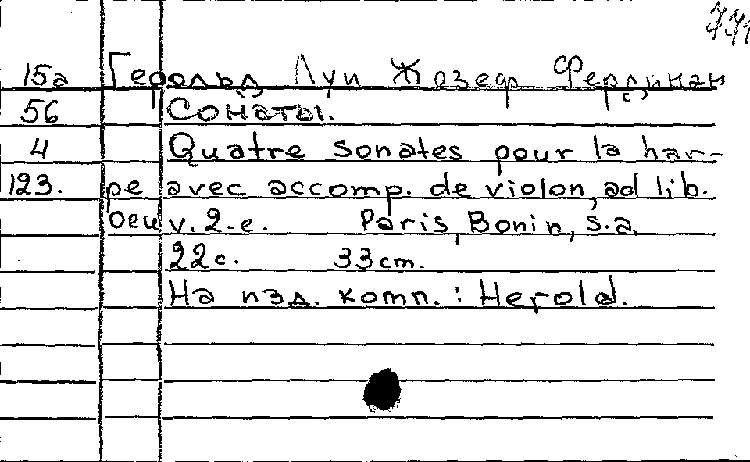 771
15а Герольд, Луи Жозеф Фердинан
56 Сонаты.
4 Quatre sonates pour la har-
123. pe avec accomp. de violon, ad lib.
Oeuv. 2-e. Paris, Bonin, s.a.
22 с. 33 cm.
На изд. комп.: Herold.